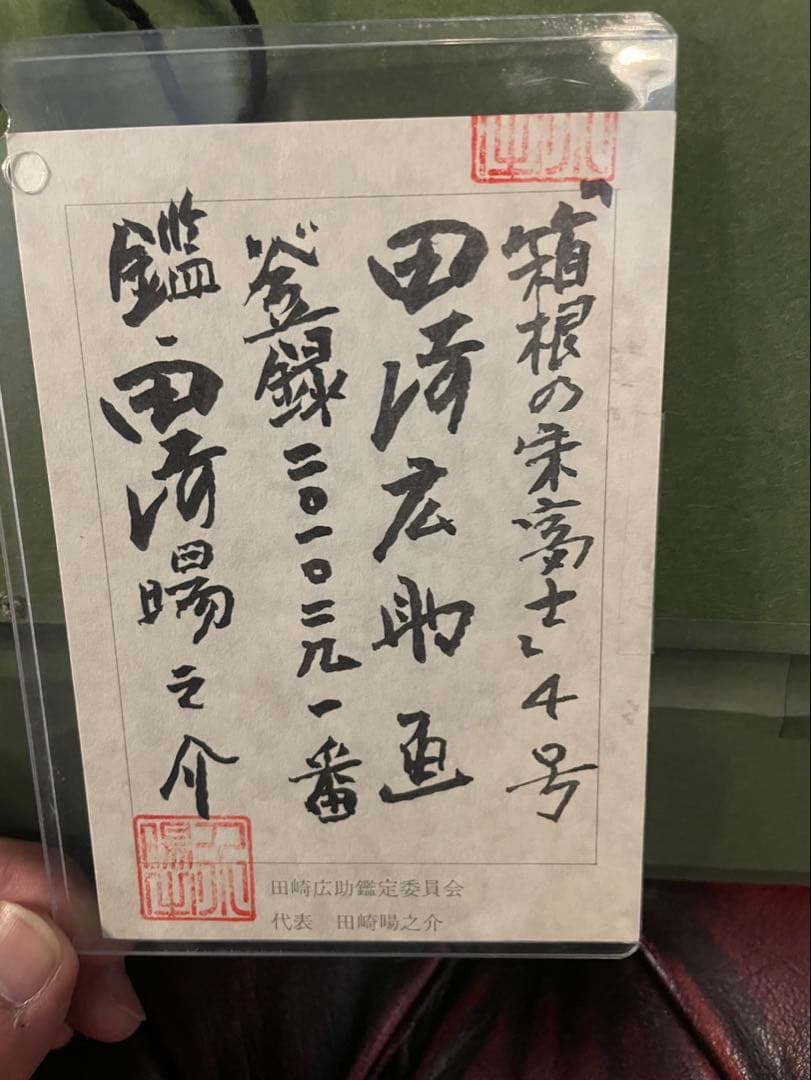 「箱根の富士」4号
田崎広助画
登録二〇一〇二九一番
鑑 田崎暘之介
田崎広助鑑定委員会
代表 田崎暘之介